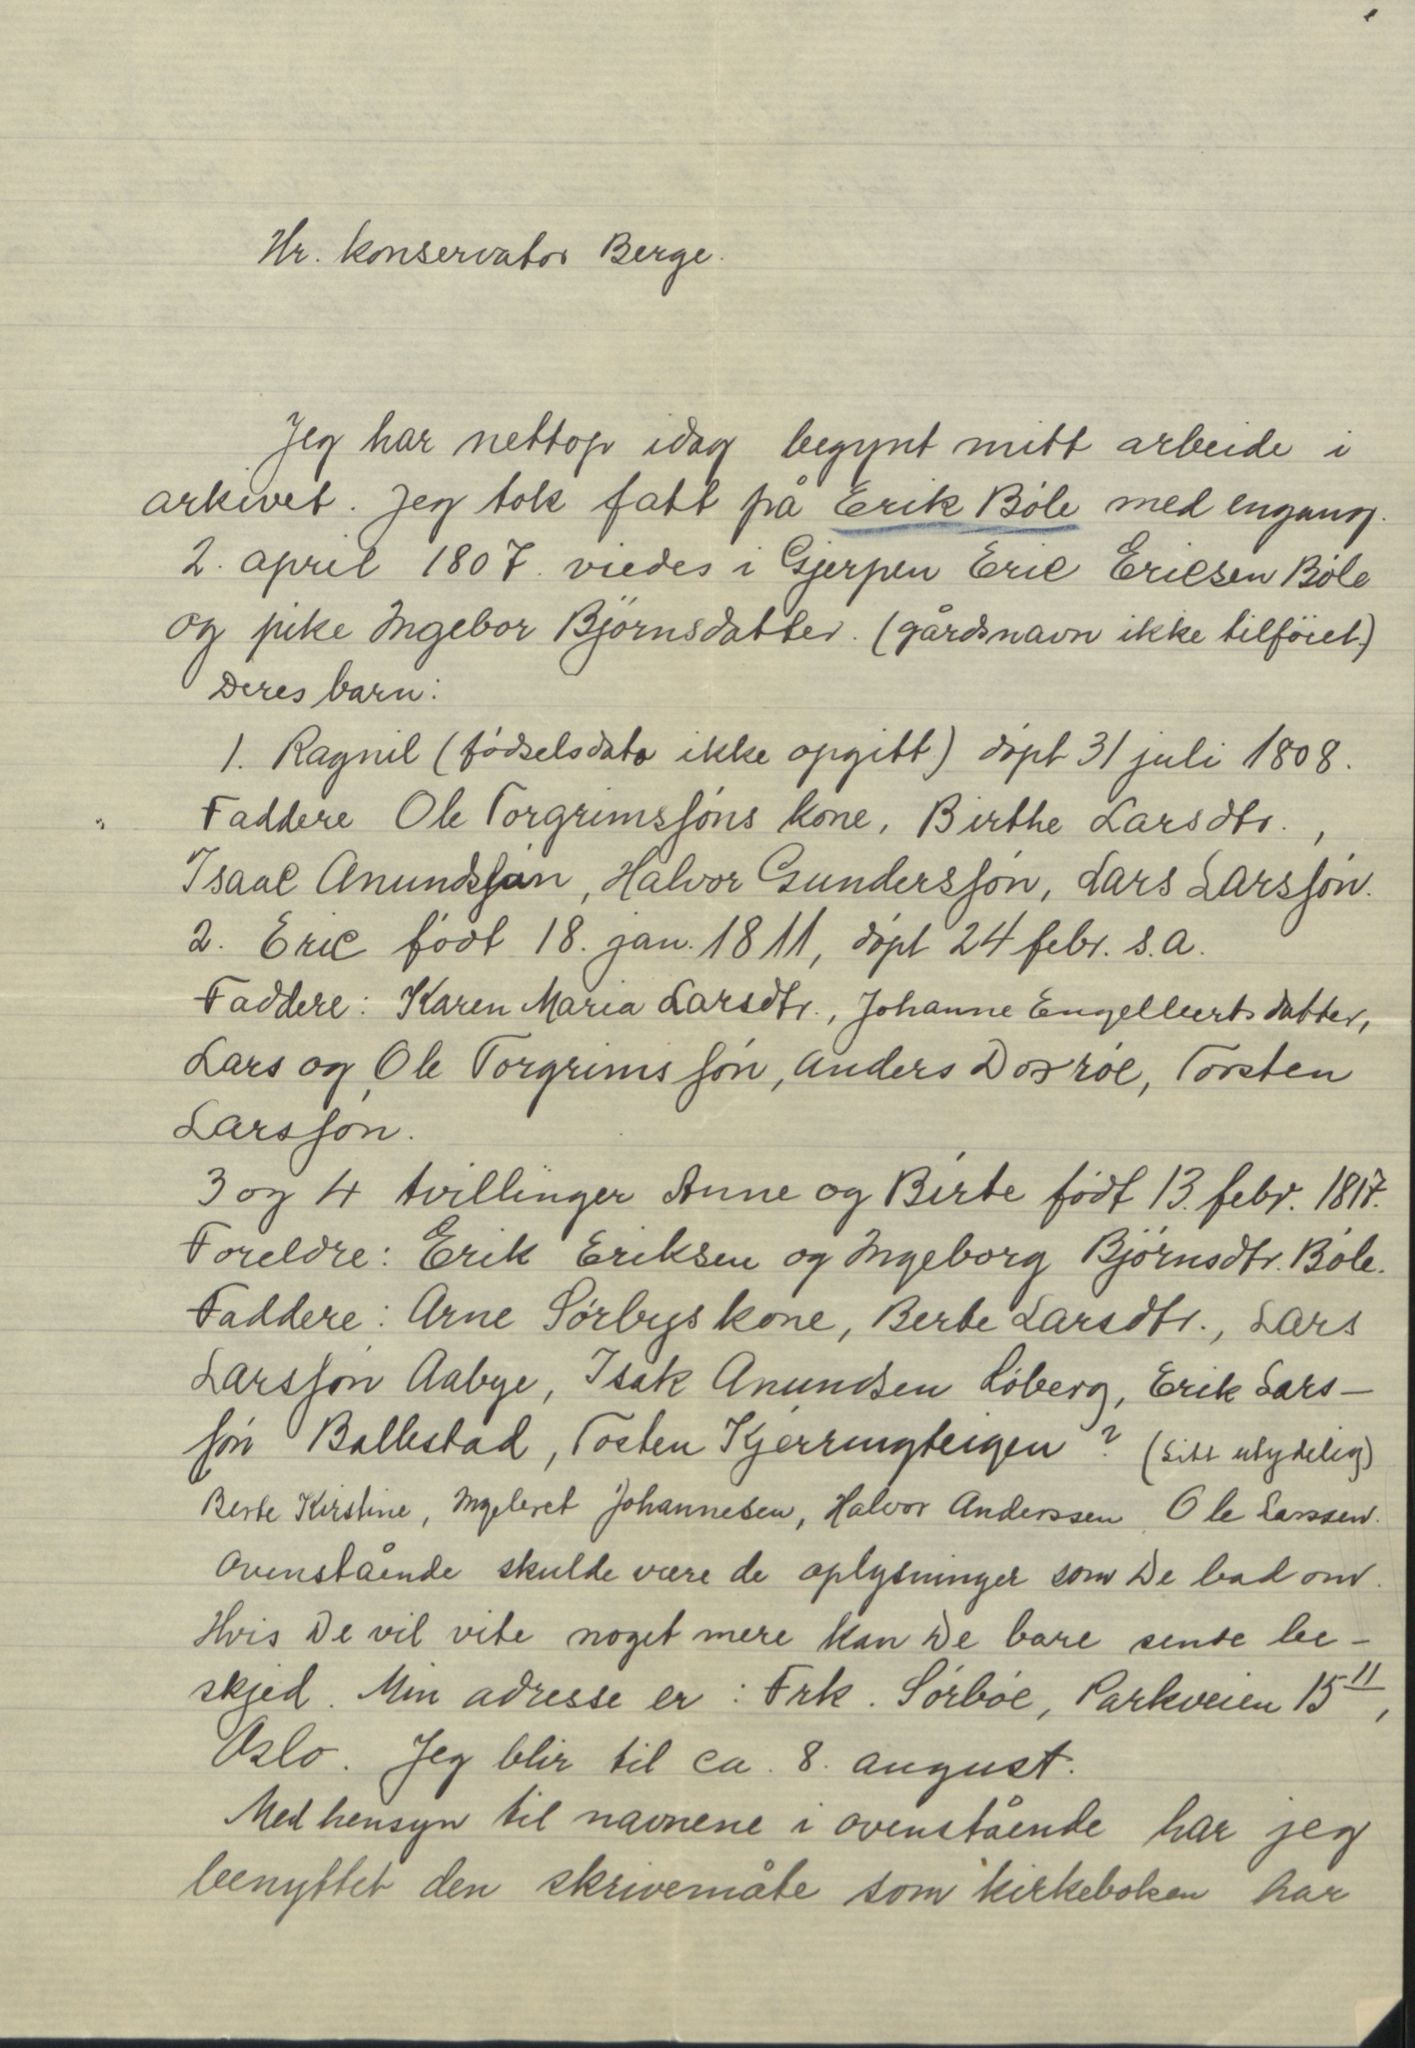 Hr. konservator Berge.
Jeg har nettop idag begynt mitt arbeide i
arkivet. Jeg tok fatt på Erik Bøle med engang.
2. april 1807. viedes i Gjerpen Eric Ericsen Bøle
og pike Ingebor Björnsdatter. (gårdsnavn ikke tilföiet.)
Deres barn:
1. Ragnil (fødselsdato ikke opgitt) døpt 31 juli 1808.
Faddere Ole Torgrimssøns kone, Birthe Larsdtr.,
Isaac Anundssøn, Halvor Gunderssøn, Lars Larssøn.
2. Eric født 18. jan. 1811, døpt 24 febr. s.a.
Faddere: Karen Maria Larsdtr., Johanne Engelbertsdatter,
Lars og Ole Torgrimssøn, Anders Doxrøe, Torsten
Larssøn.
3 og 4 tvillinger Anne og Birte født 13. febr. 1817.
Foreldre: Erik Eriksen og Ingeborg Bjørnsdtr. Bøle.
Faddere: Arne Sørbys kone, Berte Larsdtr., Lars
Larssøn Aabye, Isak Anundsen Løberg, Erik Lars-
søn Ballestad, Tosten Kjerringteigen? (Litt utydelig)
Berte Kirstine, Ingebret Johannesen, Halvor Anderssen Ole Larssen.
Ovenstående skulde være de oplysninger som De bad om.
Hvis De vil vite noget mere kan De bare sende be-
skjed. Min adresse er: Frk. Sørbøe, Parkveien 15 II,
Oslo. Jeg blir til ca. 8. august.
Med hensyn til navnene i ovenstående har jeg
benyttet den skrivemåte som kirkeboken har